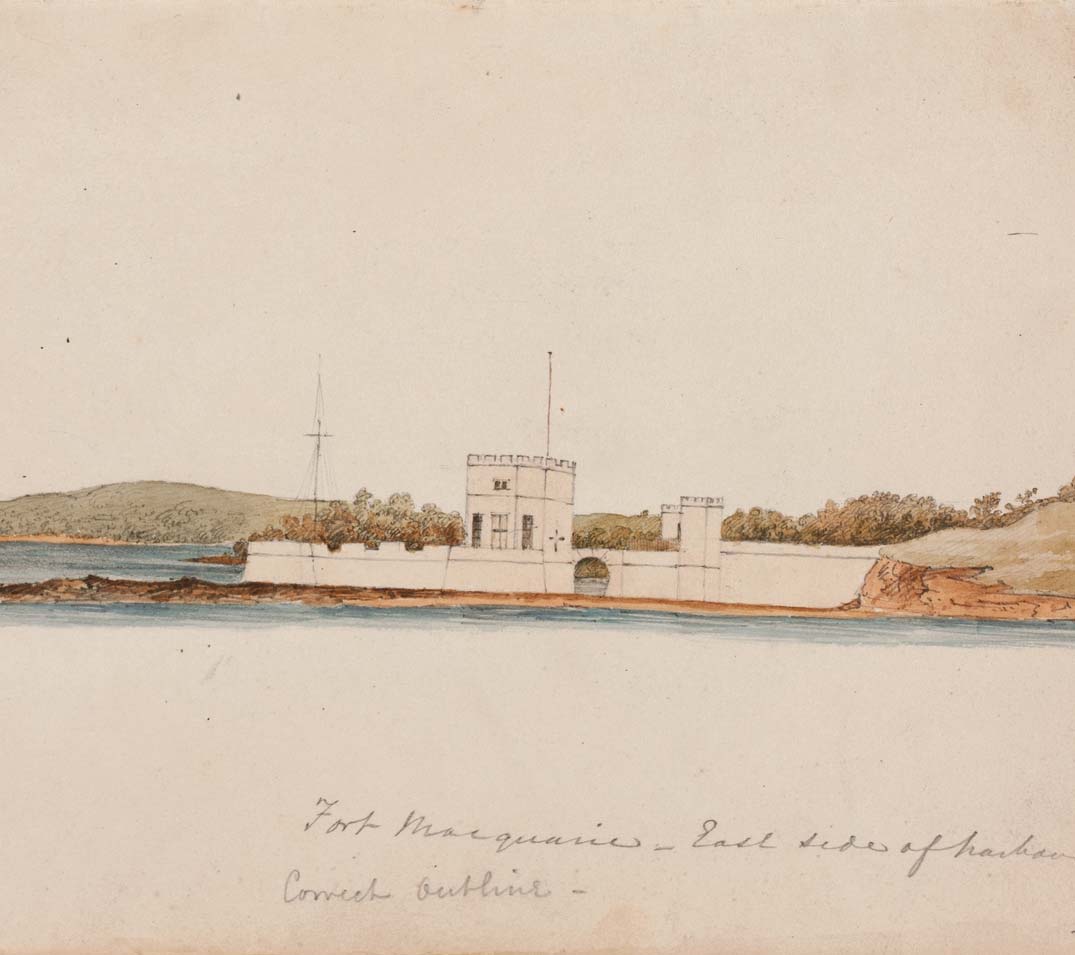 Fort Macquarie - East side of harbou
Correct Outline -